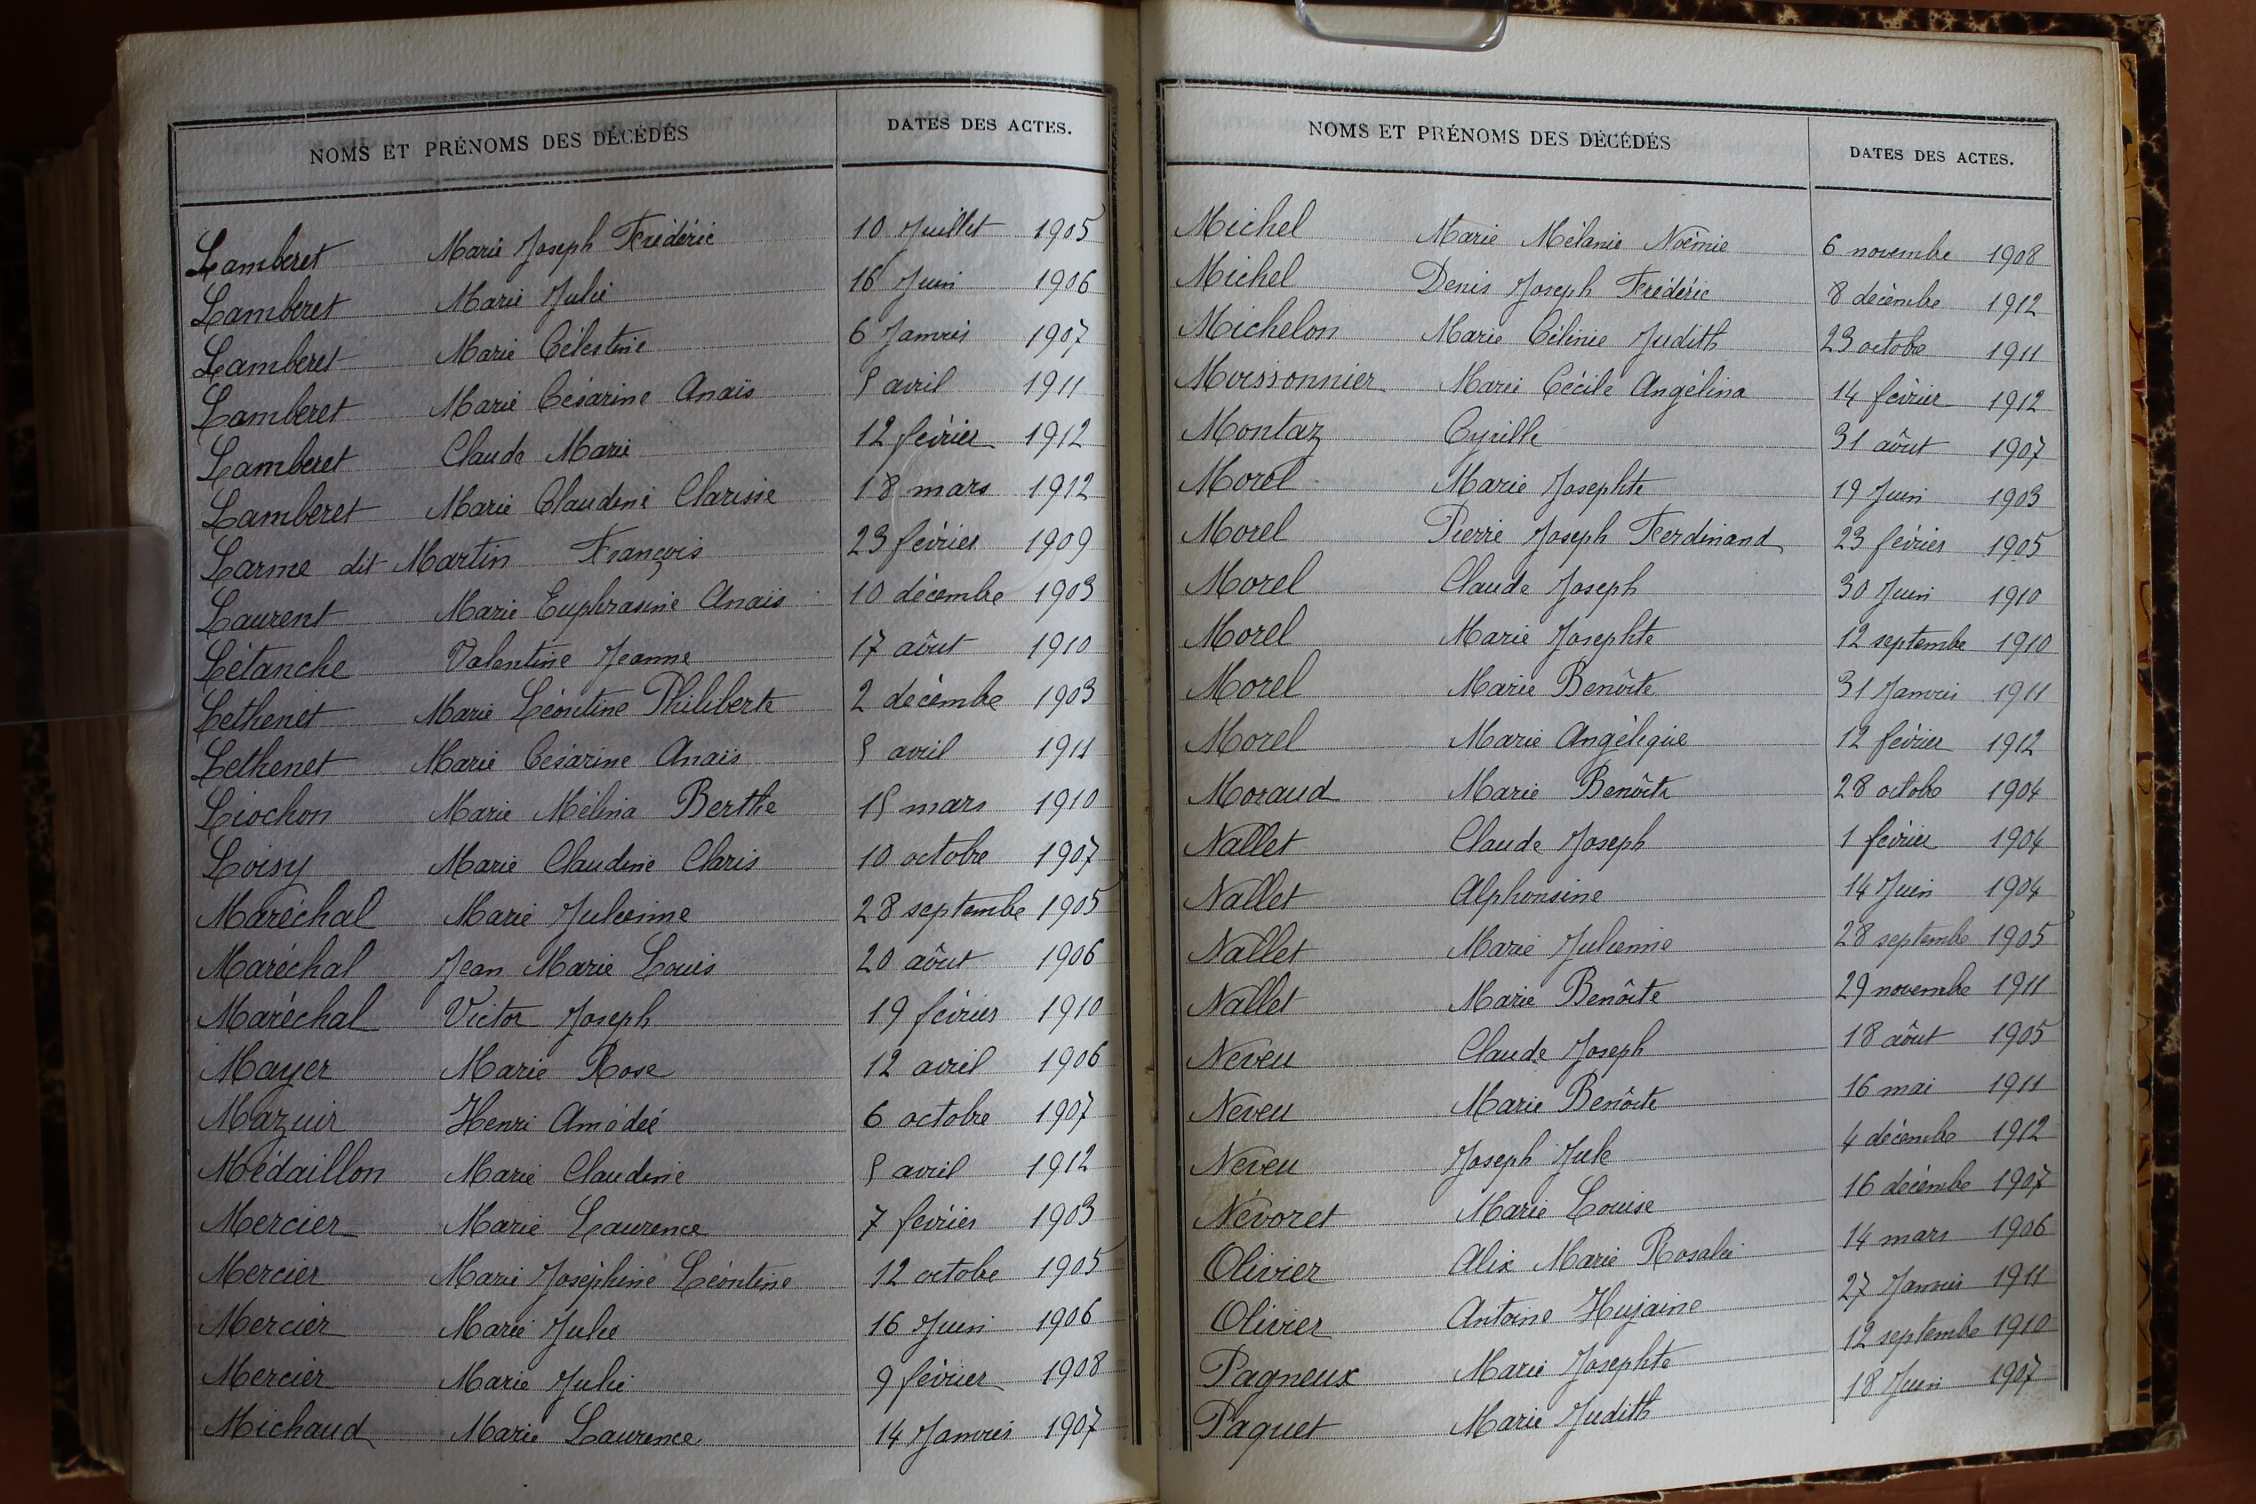 NOMS ET PRÉNOMS DES DÉCÉDÉS DATES DES ACTES.
Lamberet Marie Joseph Frédéric 10 Juillet 1905
Lamberet Marie Julie 16 Juin 1906
Lamberet Marie Célestine 6 Janvier 1907
Lamberet Marie Césarine Anaïs 5 avril 1911
Lamberet Claude Marie 12 février 1912
Lamberet Marie Claudine Clarisse 18 mars 1912
Larme dit Martin François 23 février 1909
Laurent Marie Euphrasine Anaïs 10 décembre 1903
Létanche Valentine Jeanne 17 août 1910
Lethenet Marie Léontine Philiberte 2 décembre 1903
Lethenet Marie Césarine Anaïs 5 avril 1911
Liochon Marie Mélina Berthe 15 mars 1910
Loisy Marie Claudine Claris 10 octobre 1907
Maréchal Marie Julienne 28 septembre 1905
Maréchal Jean Marie Louis 20 août 1906
Maréchal Victor Joseph 19 février 1910
Mayer Marie Rose 12 avril 1906
Mazuir Henri Amédée 6 octobre 1907
Médaillon Marie Claudine 5 avril 1912
Mercier Marie Laurence 7 février 1903
Mercier Marie Joséphine Léontine 12 octobre 1905
Mercier Marie Julie 16 Juin 1906
Mercier Marie Julie 9 février 1908
Michaud Marie Laurence 14 Janvier 1907
NOMS ET PRÉNOMS DES DÉCÉDÉS DATES DES ACTES.
Michel Marie Mélanie Noémie 6 novembre 1908
Michel Denis Joseph Frédéric 8 décembre 1912
Michelon Marie Célinie Judith 23 octobre 1911
Moissonnier Marie Cécile Angélina 14 février 1912
Montaz Cyrille 31 août 1907
Morel Marie Josephte 19 Juin 1903
Morel Pierre Joseph Ferdinand 23 février 1905
Morel Claude Joseph 30 Juin 1910
Morel Marie Josephte 12 septembre 1910
Morel Marie Benôite 31 Janvier 1911
Morel Marie Angélique 12 février 1912
Moraud Marie Benôite 28 octobre 1904
Nallet Claude Joseph 1 février 1904
Nallet Alphonsine 14 Juin 1904
Nallet Marie Julienne 28 septembre 1905
Nallet Marie Benôite 29 novembre 1911
Neveu Claude Joseph 18 août 1905
Neveu Marie Benôite 16 mai 1911
Neveu Joseph Jule 4 décembre 1912
Névoret Marie Louise 16 décembre 1907
Olivier Alix Marie Rosalie 14 mars 1906
Olivier Antoine Hujaine 27 Janvier 1911
Pagneux Marie Josephte 12 septembre 1910
Paquet Marie Judith 18 Juin 1907